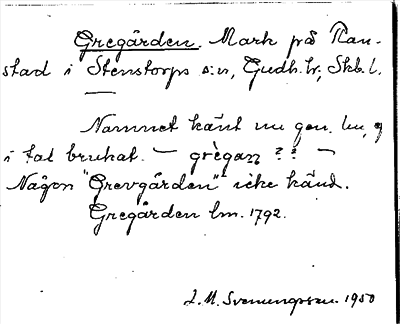 Gregården. Mark på Ran-
stad i Stenstorps s:n, Gudh. hr, Skb. l.
—
Namnet känt nu gen. lm, ej
i tal brukat. — grègaṇ ? ? —
Någon "Grevgården" icke känd.
Gregården lm. 1792.
J. M. Svenungsson. 1950